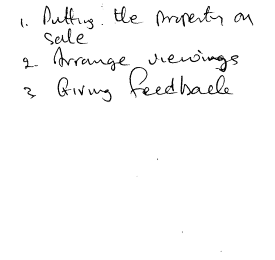 1. Putting the property on
sale
2. Arrange viewings
3 Giving feedback